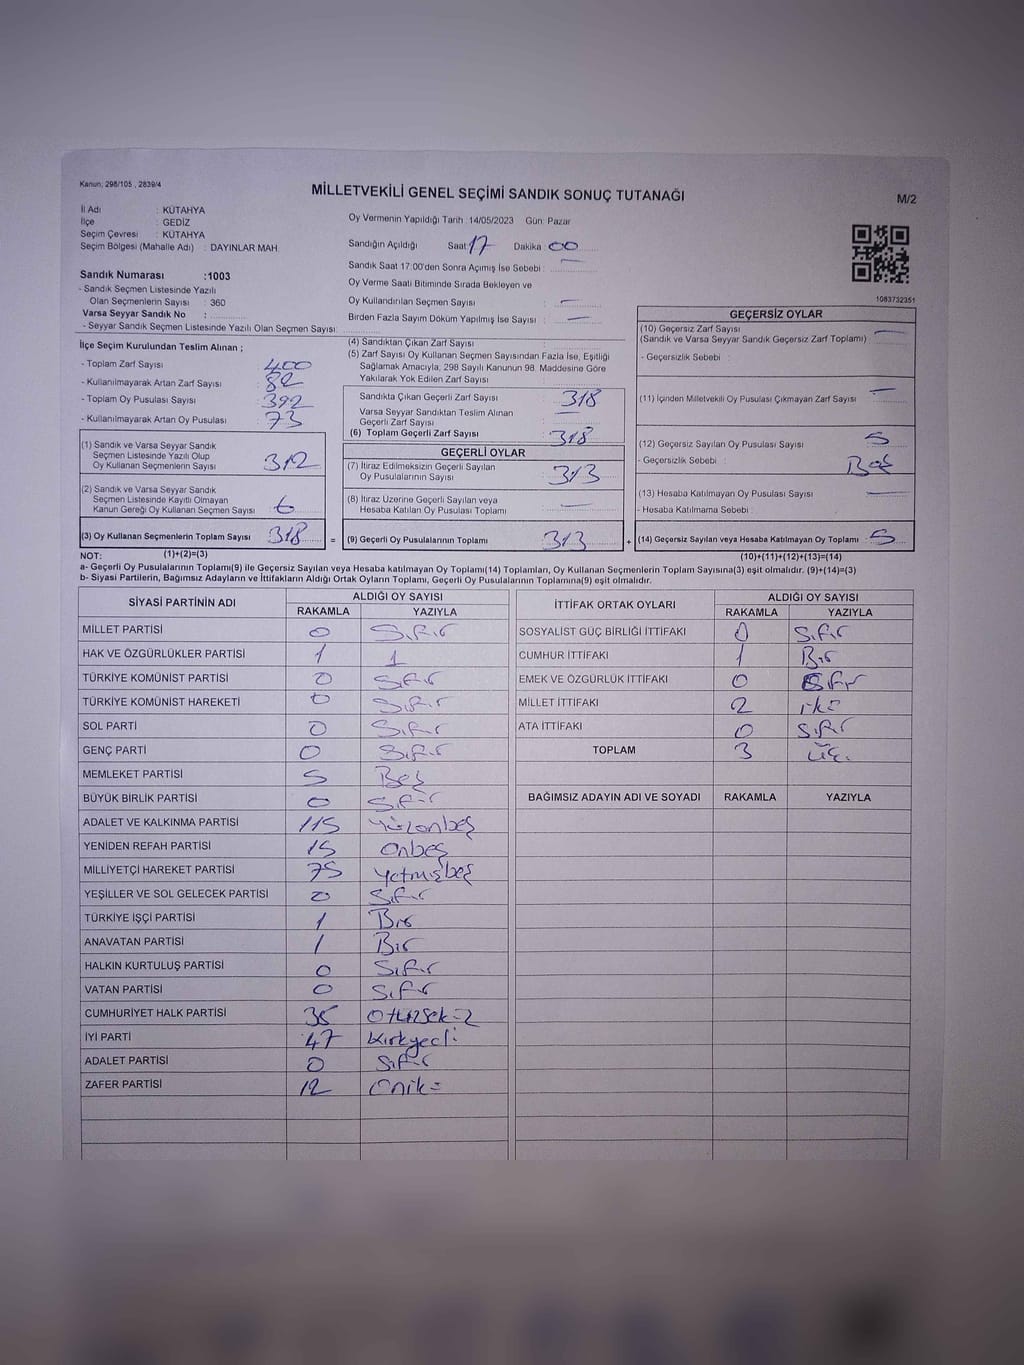 Kanun; 298/105 , 2839/4
MİLLETVEKİLİ GENEL SEÇİMİ SANDIK SONUÇ TUTANAĞI
M/2
İl Adı : KÜTAHYA
İlçe : GEDİZ
Seçim Çevresi : KÜTAHYA
Seçim Bölgesi (Mahalle Adı) : DAYINLAR MAH.
Oy Vermenin Yapıldığı Tarih : 14/05/2023 Gün: Pazar
Sandığın Açıldığı Saat: 17 Dakika : 00
Sandık Saat 17:00'den Sonra Açımış İse Sebebi : —
Oy Verme Saati Bitiminde Sırada Bekleyen ve
Oy Kullandırılan Seçmen Sayısı : —
Birden Fazla Sayım Döküm Yapılmış İse Sayısı : —
Sandık Numarası :1003
- Sandık Seçmen Listesinde Yazılı
Olan Seçmenlerin Sayısı : 360
Varsa Seyyar Sandık No :
- Seyyar Sandık Seçmen Listesinde Yazılı Olan Seçmen Sayısı:
1083732351
İlçe Seçim Kurulundan Teslim Alınan ;
- Toplam Zarf Sayısı : 400
- Kullanılmayarak Artan Zarf Sayısı : 82
- Toplam Oy Pusulası Sayısı : 392
- Kullanılmayarak Artan Oy Pusulası : 73
(1) Sandık ve Varsa Seyyar Sandık
Seçmen Listesinde Yazılı Olup
Oy Kullanan Seçmenlerin Sayısı : 312
(2) Sandık ve Varsa Seyyar Sandık
Seçmen Listesinde Kayıtlı Olmayan
Kanun Gereği Oy Kullanan Seçmen Sayısı : 6
(3) Oy Kullanan Seçmenlerin Toplam Sayısı : 318
(1)+(2)=(3)
(4) Sandıktan Çıkan Zarf Sayısı :
(5) Zarf Sayısı Oy Kullanan Seçmen Sayısından Fazla İse, Eşitliği
Sağlamak Amacıyla, 298 Sayılı Kanunun 98. Maddesine Göre
Yakılarak Yok Edilen Zarf Sayısı :
Sandıkta Çıkan Geçerli Zarf Sayısı : 318
Varsa Seyyar Sandıktan Teslim Alınan
Geçerli Zarf Sayısı : —
(6) Toplam Geçerli Zarf Sayısı : 318
GEÇERLİ OYLAR
(7) İtiraz Edilmeksizin Geçerli Sayılan
Oy Pusulalarının Sayısı : 313
(8) İtiraz Üzerine Geçerli Sayılan veya
Hesaba Katılan Oy Pusulası Toplamı : —
= (9) Geçerli Oy Pusulalarının Toplamı : 313
GEÇERSİZ OYLAR
(10) Geçersiz Zarf Sayısı : —
(Sandık ve Varsa Seyyar Sandık Geçersiz Zarf Toplamı)
- Geçersizlik Sebebi :
(11) İçinden Milletvekili Oy Pusulası Çıkmayan Zarf Sayısı : —
(12) Geçersiz Sayılan Oy Pusulası Sayısı : 5
- Geçersizlik Sebebi :
(13) Hesaba Katılmayan Oy Pusulası Sayısı : —
- Hesaba Katılmama Sebebi :
+ (14) Geçersiz Sayılan veya Hesaba Katılmayan Oy Toplamı : 5
(10)+(11)+(12)+(13)=(14)
NOT:
a- Geçerli Oy Pusulalarının Toplamı(9) ile Geçersiz Sayılan veya Hesaba Katılmayan Oy Toplamı(14) Toplamları, Oy Kullanan Seçmenlerin Toplam Sayısına(3) eşit olmalıdır. (9)+(14)=(3)
b- Siyasi Partilerin, Bağımsız Adayların ve İttifakların Aldığı Ortak Oyların Toplamı, Geçerli Oy Pusulalarının Toplamına(9) eşit olmalıdır.
SİYASİ PARTİNİN ADI ALDIĞI OY SAYISI
RAKAMLA YAZIYLA
MİLLET PARTİSİ 0 Sıfır
HAK VE ÖZGÜRLÜKLER PARTİSİ 1 1
TÜRKİYE KOMÜNİST PARTİSİ 0 Sıfır
TÜRKİYE KOMÜNİST HAREKETİ 0 Sıfır
SOL PARTİ 0 Sıfır
GENÇ PARTİ 0 Sıfır
MEMLEKET PARTİSİ 5 Beş
BÜYÜK BİRLİK PARTİSİ 0 Sıfır
ADALET VE KALKINMA PARTİSİ 115 Yüzonbeş
YENİDEN REFAH PARTİSİ 15 Onbeş
MİLLİYETÇİ HAREKET PARTİSİ 75 Yetmişbeş
YEŞİLLER VE SOL GELECEK PARTİSİ 0 Sıfır
TÜRKİYE İŞÇİ PARTİSİ 1 Bir
ANAVATAN PARTİSİ 1 Bir
HALKIN KURTULUŞ PARTİSİ 0 Sıfır
VATAN PARTİSİ 0 Sıfır
CUMHURİYET HALK PARTİSİ 38 Otuzsekiz
İYİ PARTİ 47 Kırkyedi
ADALET PARTİSİ 0 Sıfır
ZAFER PARTİSİ 12 Oniki
İTTİFAK ORTAK OYLARI ALDIĞI OY SAYISI
RAKAMLA YAZIYLA
SOSYALİST GÜÇ BİRLİĞİ İTTİFAKI 0 Sıfır
CUMHUR İTTİFAKI 1 Bir
EMEK VE ÖZGÜRLÜK İTTİFAKI 0 Sıfır
MİLLET İTTİFAKI 2 iki
ATA İTTİFAKI 0 Sıfır
TOPLAM 3 Üç.
BAĞIMSIZ ADAYIN ADI VE SOYADI RAKAMLA YAZIYLA